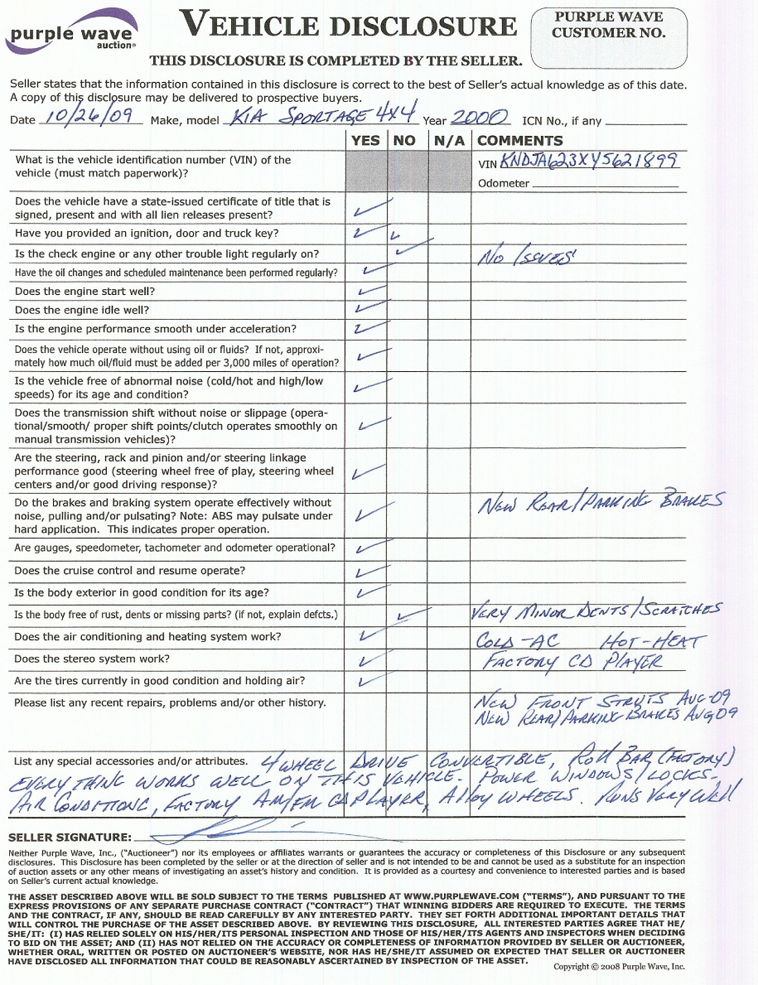 purple wave
auction®
VEHICLE DISCLOSURE
PURPLE WAVE
CUSTOMER NO.
THIS DISCLOSURE IS COMPLETED BY THE SELLER.
Seller states that the information contained in this disclosure is correct to the best of Seller's actual knowledge as of this date.
A copy of this disclosure may be delivered to prospective buyers.
Date 10/26/09 Make, model KIA SPORTAGE 4X4 Year 2000 ICN No., if any
YES NO N/A COMMENTS
What is the vehicle identification number (VIN) of the
vehicle (must match paperwork)?
VIN KNDJA623XY5621899
Odometer
Does the vehicle have a state-issued certificate of title that is
signed, present and with all lien releases present?
Have you provided an ignition, door and truck key?
Is the check engine or any other trouble light regularly on? NO ISSUES
Have the oil changes and scheduled maintenance been performed regularly?
Does the engine start well?
Does the engine idle well?
Is the engine performance smooth under acceleration?
Does the vehicle operate without using oil or fluids? If not, approxi-
mately how much oil/fluid must be added per 3,000 miles of operation?
Is the vehicle free of abnormal noise (cold/hot and high/low
speeds) for its age and condition?
Does the transmission shift without noise or slippage (opera-
tional/smooth/ proper shift points/clutch operates smoothly on
manual transmission vehicles)?
Are the steering, rack and pinion and/or steering linkage
performance good (steering wheel free of play, steering wheel
centers and/or good driving response)?
Do the brakes and braking system operate effectively without
noise, pulling and/or pulsating? Note: ABS may pulsate under
hard application. This indicates proper operation.
NEW REAR/PARKING BRAKES
Are gauges, speedometer, tachometer and odometer operational?
Does the cruise control and resume operate?
Is the body exterior in good condition for its age?
Is the body free of rust, dents or missing parts? (if not, explain defcts.) VERY MINOR DENTS/SCRATCHES
Does the air conditioning and heating system work? COLD-AC HOT-HEAT
Does the stereo system work? FACTORY CD PLAYER
Are the tires currently in good condition and holding air?
Please list any recent repairs, problems and/or other history. NEW FRONT STRUTS AUG-09
NEW REAR/PARKING BRAKES AUG09
List any special accessories and/or attributes. 4 WHEEL DRIVE CONVERTIBLE, ROLL BAR (FACTORY)
EVERYTHING WORKS WELL ON THIS VEHICLE. POWER WINDOWS/LOCKS-
AIR CONDITIONG, FACTORY AM/FM CD PLAYER, ALLOY WHEELS. RUNS VERY WELL
SELLER SIGNATURE:
Neither Purple Wave, Inc., ("Auctioneer") nor its employees or affiliates warrants or guarantees the accuracy or completeness of this Disclosure or any subsequent
disclosures. This Disclosure has been completed by the seller or at the direction of seller and is not intended to be and cannot be used as a substitute for an inspection
of auction assets or any other means of investigating an asset's history and condition. It is provided as a courtesy and convenience to interested parties and is based
on Seller's current actual knowledge.
THE ASSET DESCRIBED ABOVE WILL BE SOLD SUBJECT TO THE TERMS PUBLISHED AT WWW.PURPLEWAVE.COM ("TERMS"), AND PURSUANT TO THE
EXPRESS PROVISIONS OF ANY SEPARATE PURCHASE CONTRACT ("CONTRACT") THAT WINNING BIDDERS ARE REQUIRED TO EXECUTE. THE TERMS
AND THE CONTRACT, IF ANY, SHOULD BE READ CAREFULLY BY ANY INTERESTED PARTY. THEY SET FORTH ADDITIONAL IMPORTANT DETAILS THAT
WILL CONTROL THE PURCHASE OF THE ASSET DESCRIBED ABOVE. BY REVIEWING THIS DISCLOSURE, ALL INTERESTED PARTIES AGREE THAT HE/
SHE/IT: (I) HAS RELIED SOLELY ON HIS/HER/ITS PERSONAL INSPECTION AND THOSE OF HIS/HER/ITS AGENTS AND INSPECTORS WHEN DECIDING
TO BID ON THE ASSET; AND (II) HAS NOT RELIED ON THE ACCURACY OR COMPLETENESS OF INFORMATION PROVIDED BY SELLER OR AUCTIONEER,
WHETHER ORAL, WRITTEN OR POSTED ON AUCTIONEER'S WEBSITE, NOR HAS HE/SHE/IT ASSUMED OR EXPECTED THAT SELLER OR AUCTIONEER
HAVE DISCLOSED ALL INFORMATION THAT COULD BE REASONABLY ASCERTAINED BY INSPECTION OF THE ASSET.
Copyright © 2008 Purple Wave, Inc.